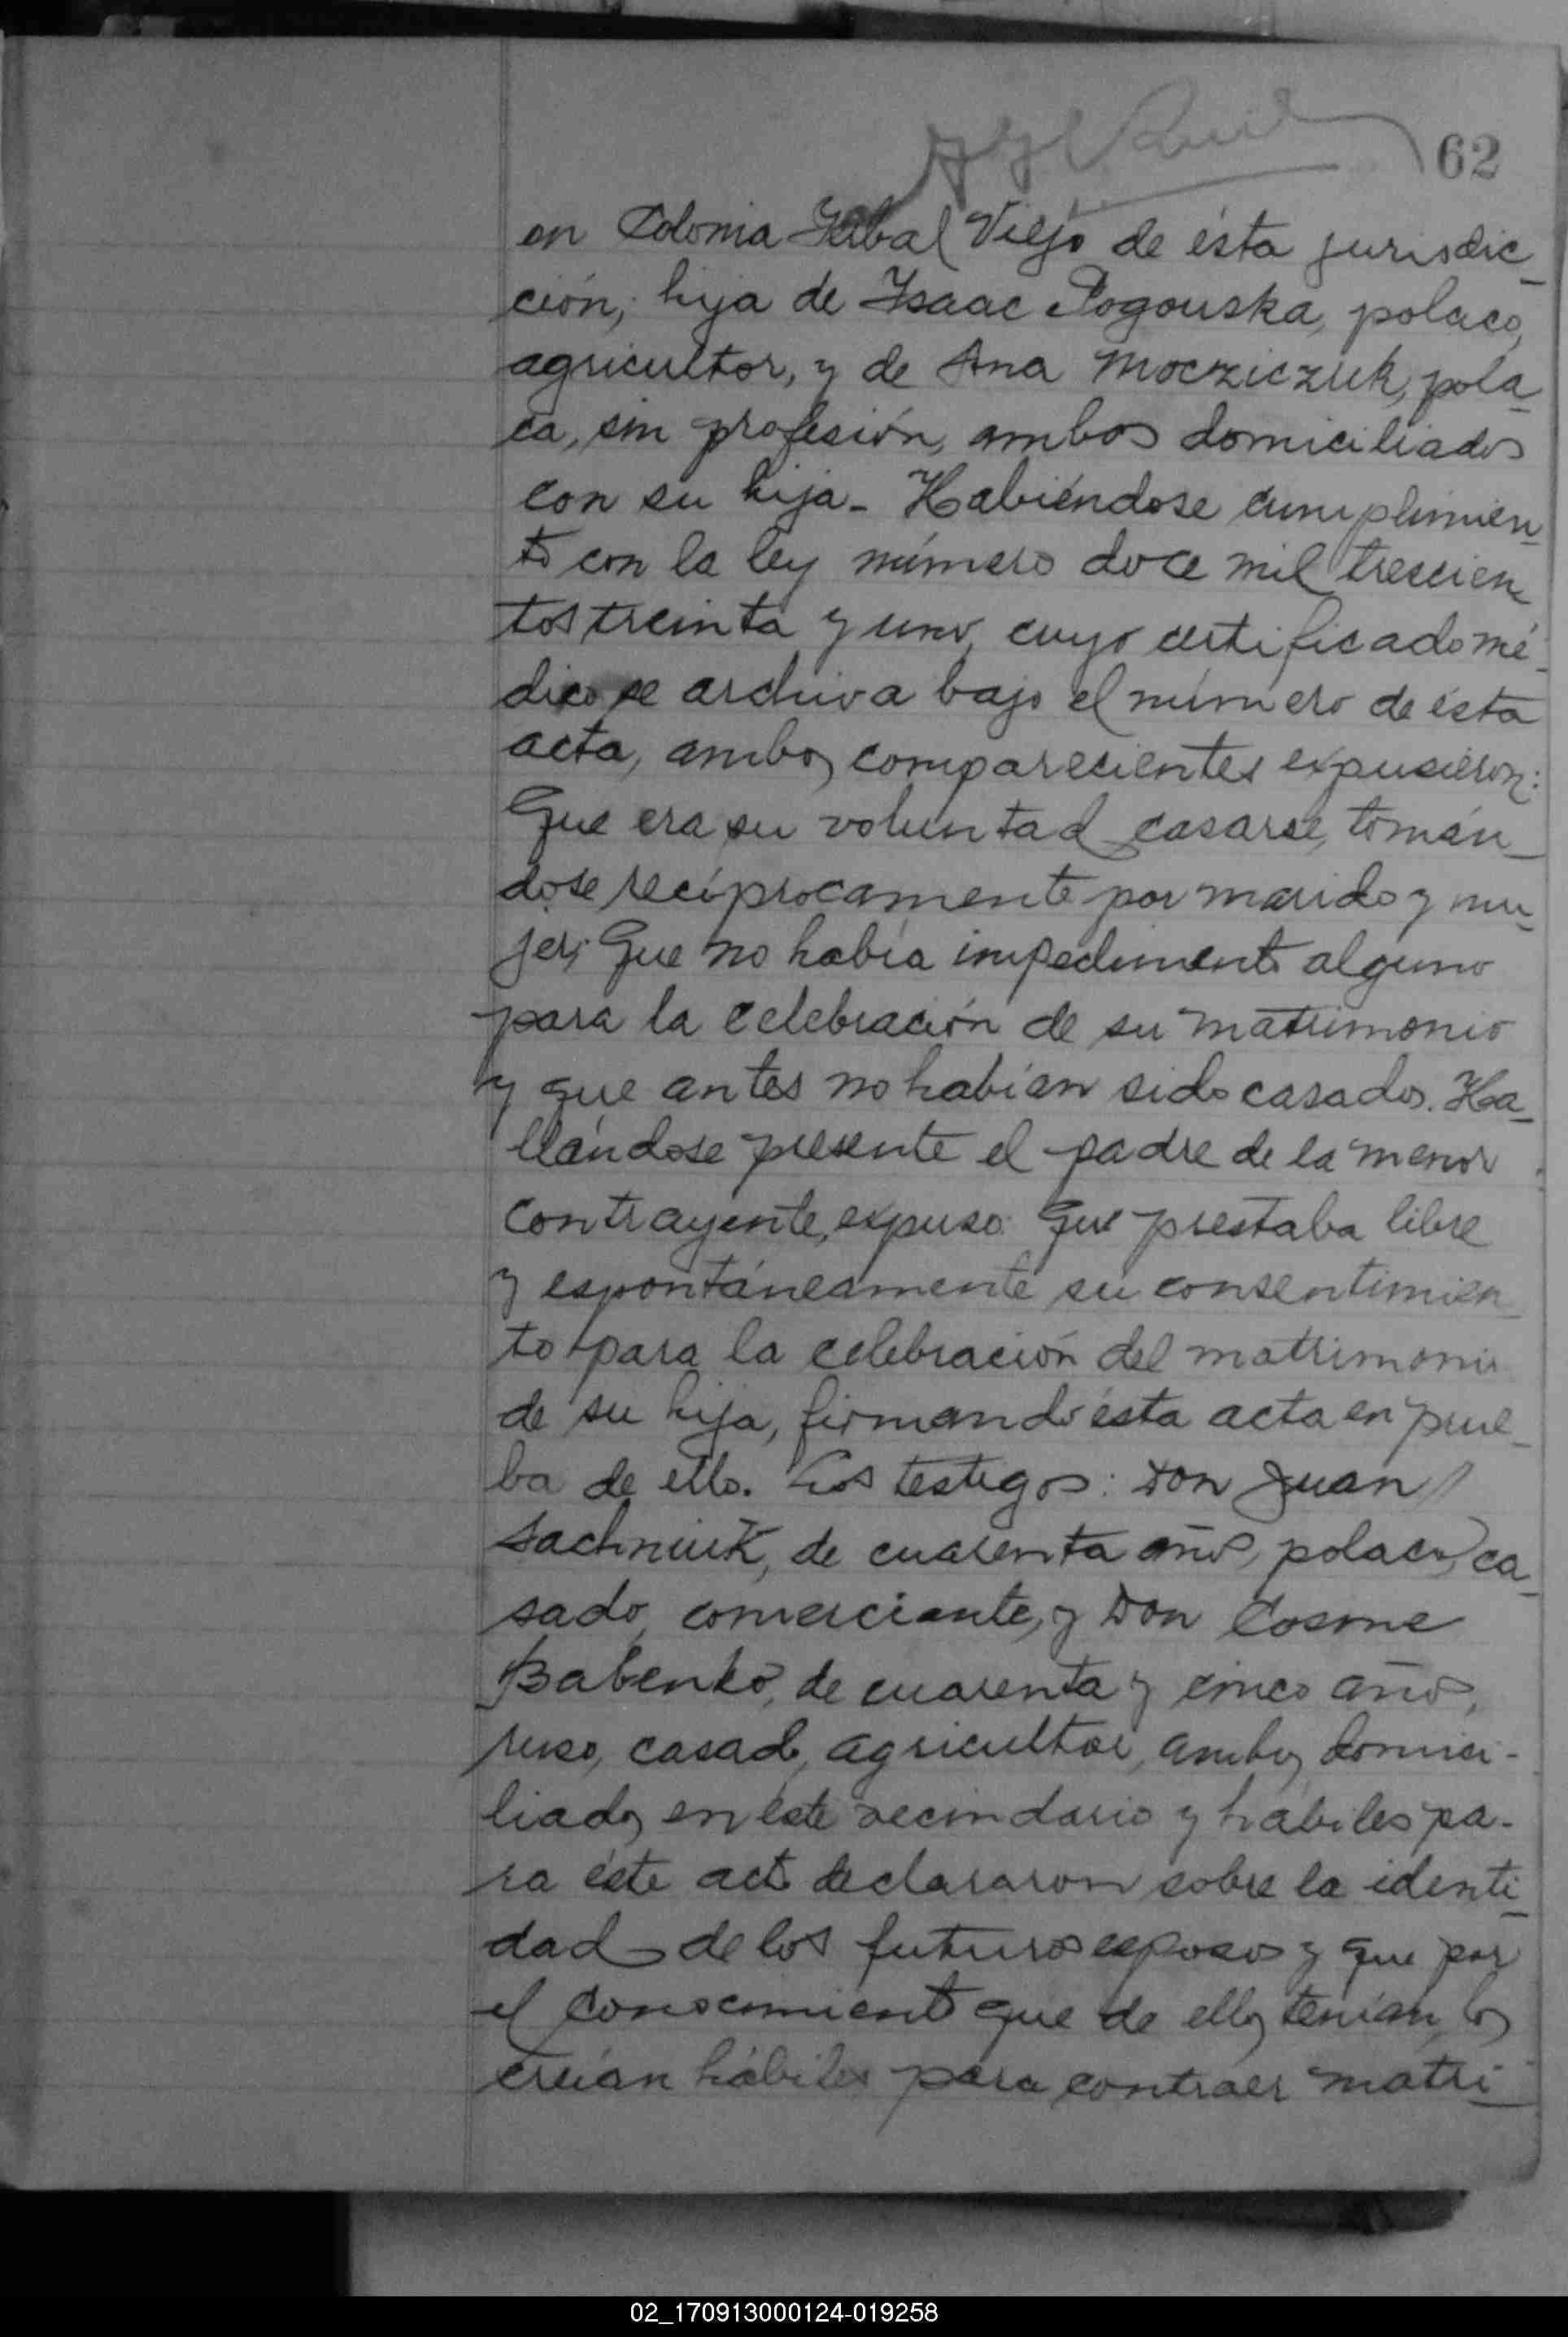 62
en Colonia Yerbal Viejo de ésta jurisdic_
ción; hija de Isaac Pogouska, polaco,
agricultor, y de Ana Mocziczuk, pola_
ca, sin profesión, ambos domiciliados
con su hija_ Habiéndose cumplimien_
to con la ley número doce mil trescien_
tos treinta y uno, cuyo certificado mé_
dico se archiva bajo el número de ésta
acta, ambos comparecientes expusieron:
Que era su voluntad casarse, tomán_
dose recíprocamente por marido y mu_
jer; Que no había impedimento alguno
para la celebración de su matrimonio
y que antes no habían sido casados. Ha_
llándose presente el padre de la menor
contrayente, expuso: Que prestaba libre
y espontáneamente su consentimien_
to para la celebración del matrimonio
de su hija, firmando ésta acta en prue_
ba de ello. Los testigos: Don Juan
Sachniuk, de cuarenta años, polaco, ca_
sado, comerciante, y Don Cosme
Babenko, de cuarenta y cinco años,
ruso, casado, agricultor, ambos domici-
liados en éste vecindario y hábiles pa-
ra éste acto declararon sobre la identi_
dad de los futuros esposos y que por
el conocimiento que de ellos tenían, los
creían hábiles para contraer matri_
02_170913000124-019258